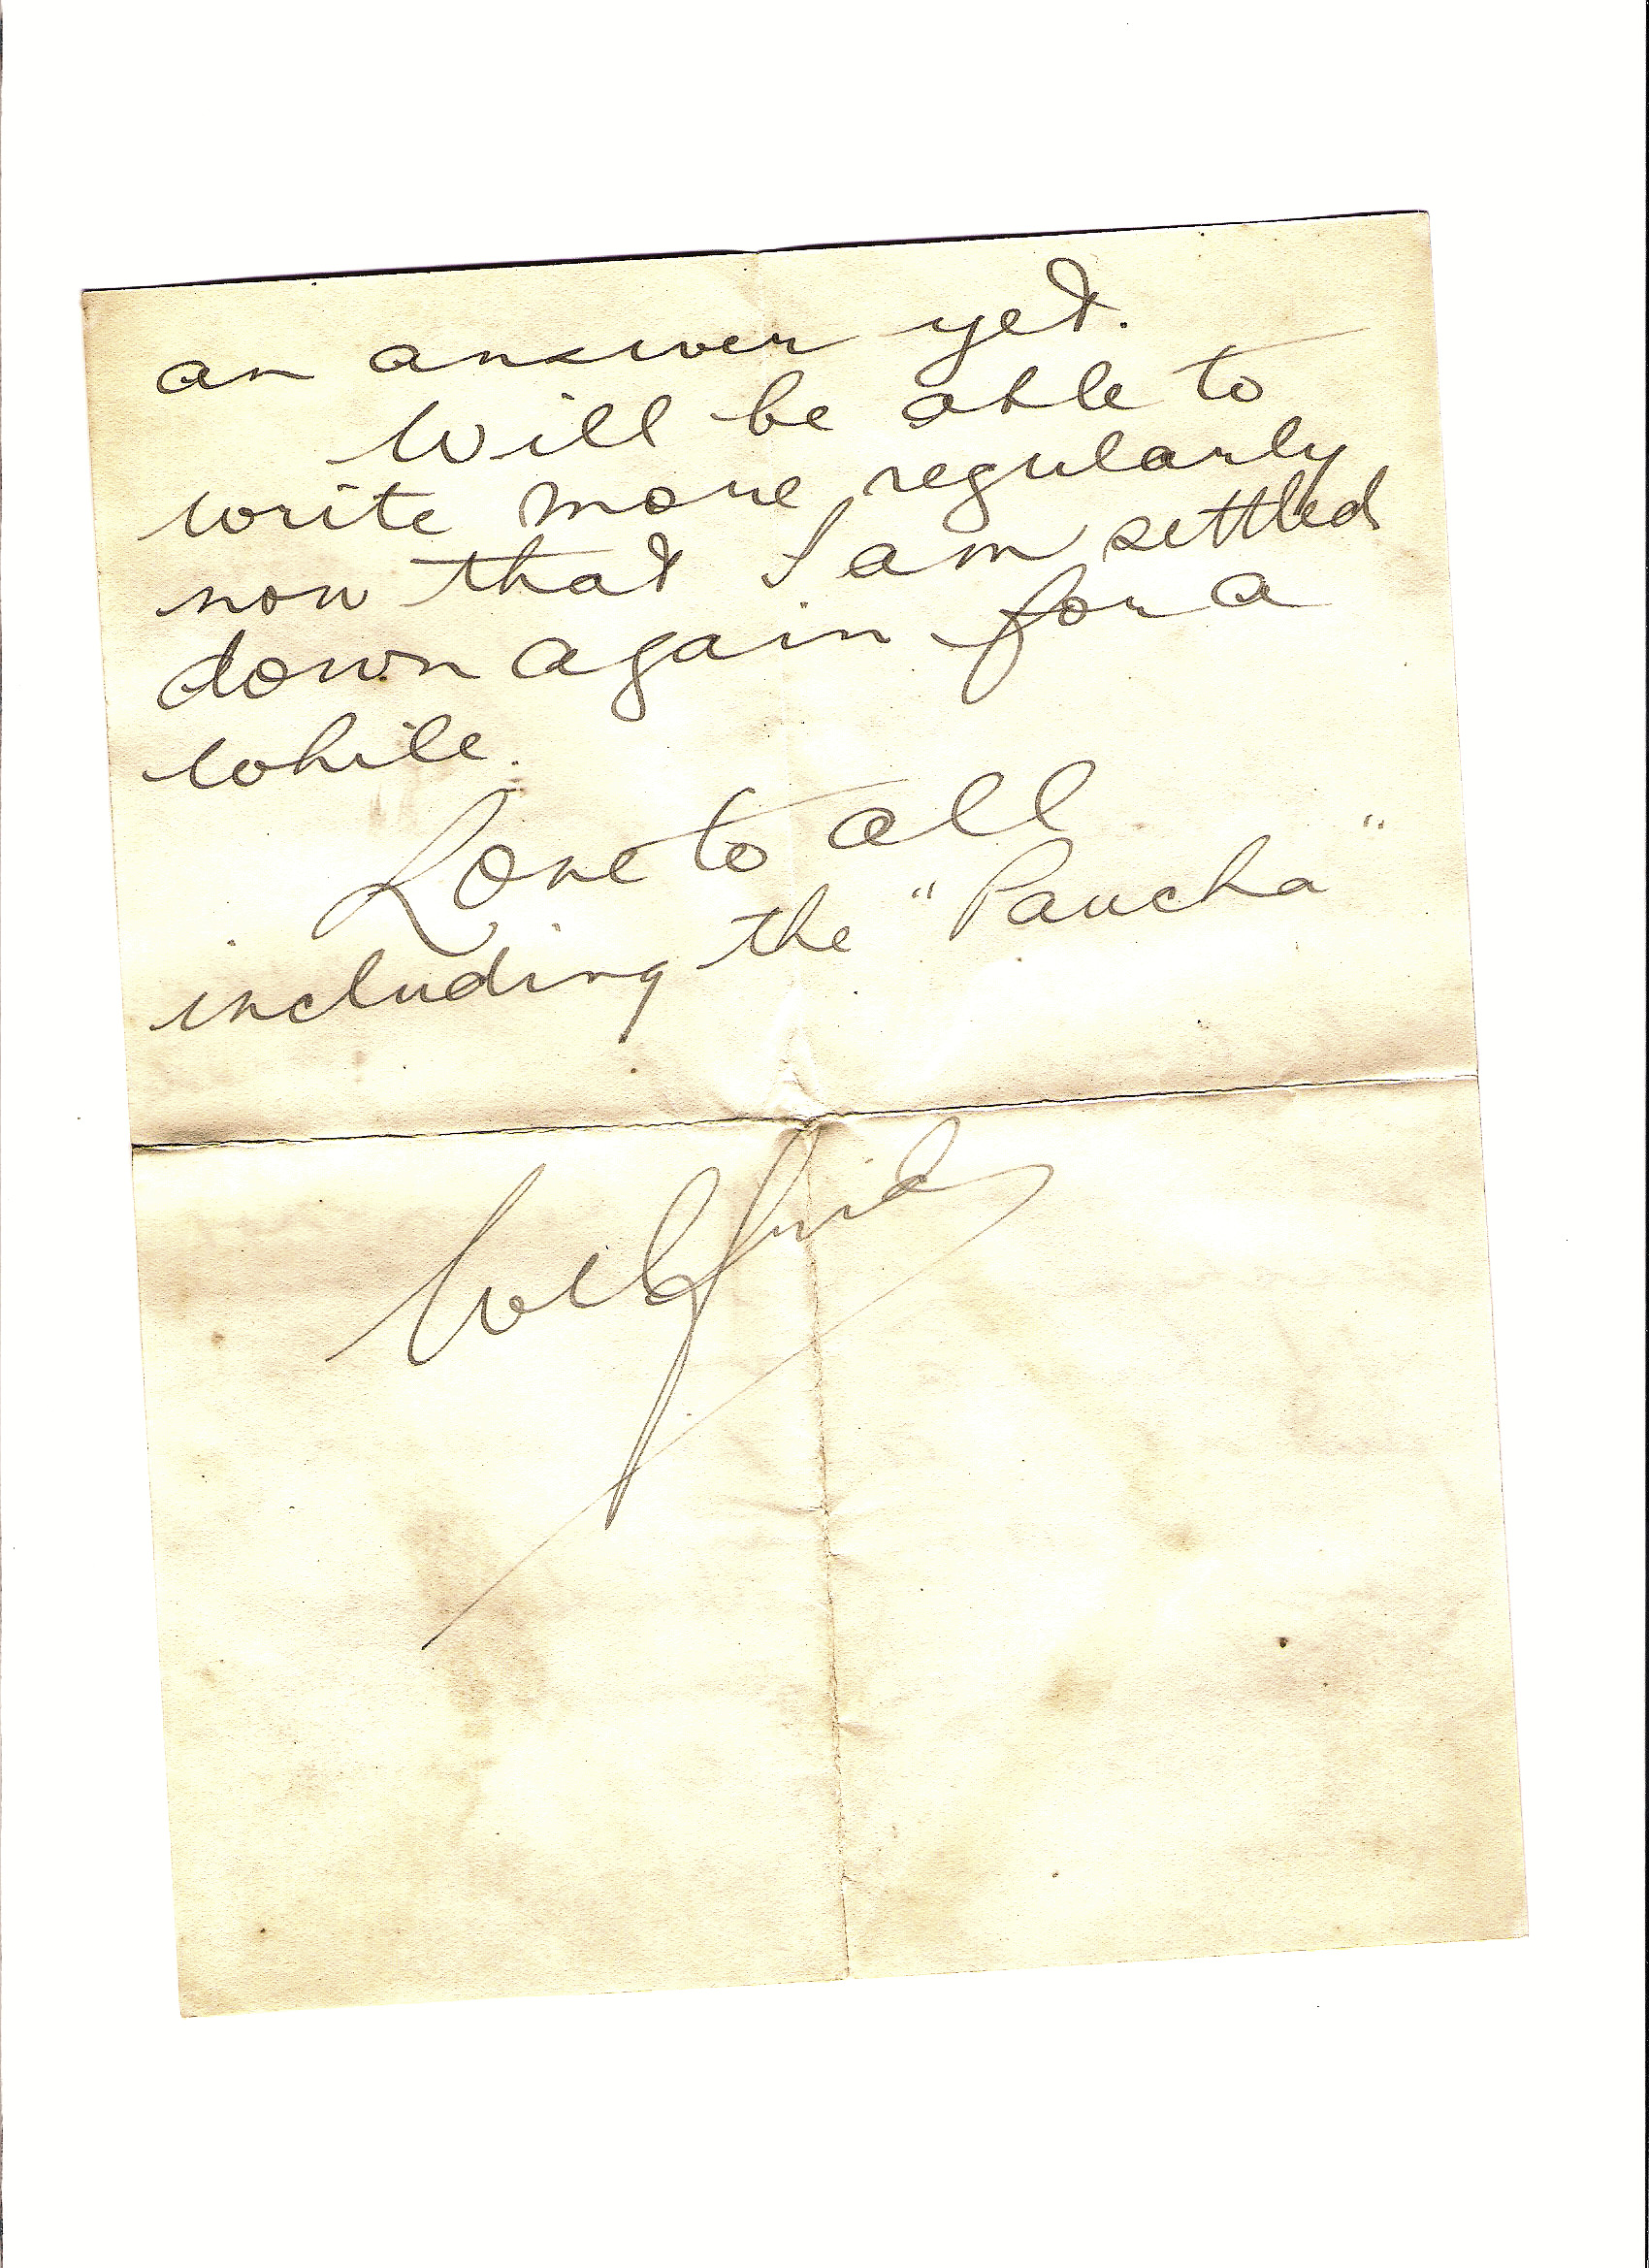 an answer yet.
Will be able to
write more regularly
now that I am settled
down again for a
while.
Love to all
including the "Paucha"
Wilfrid